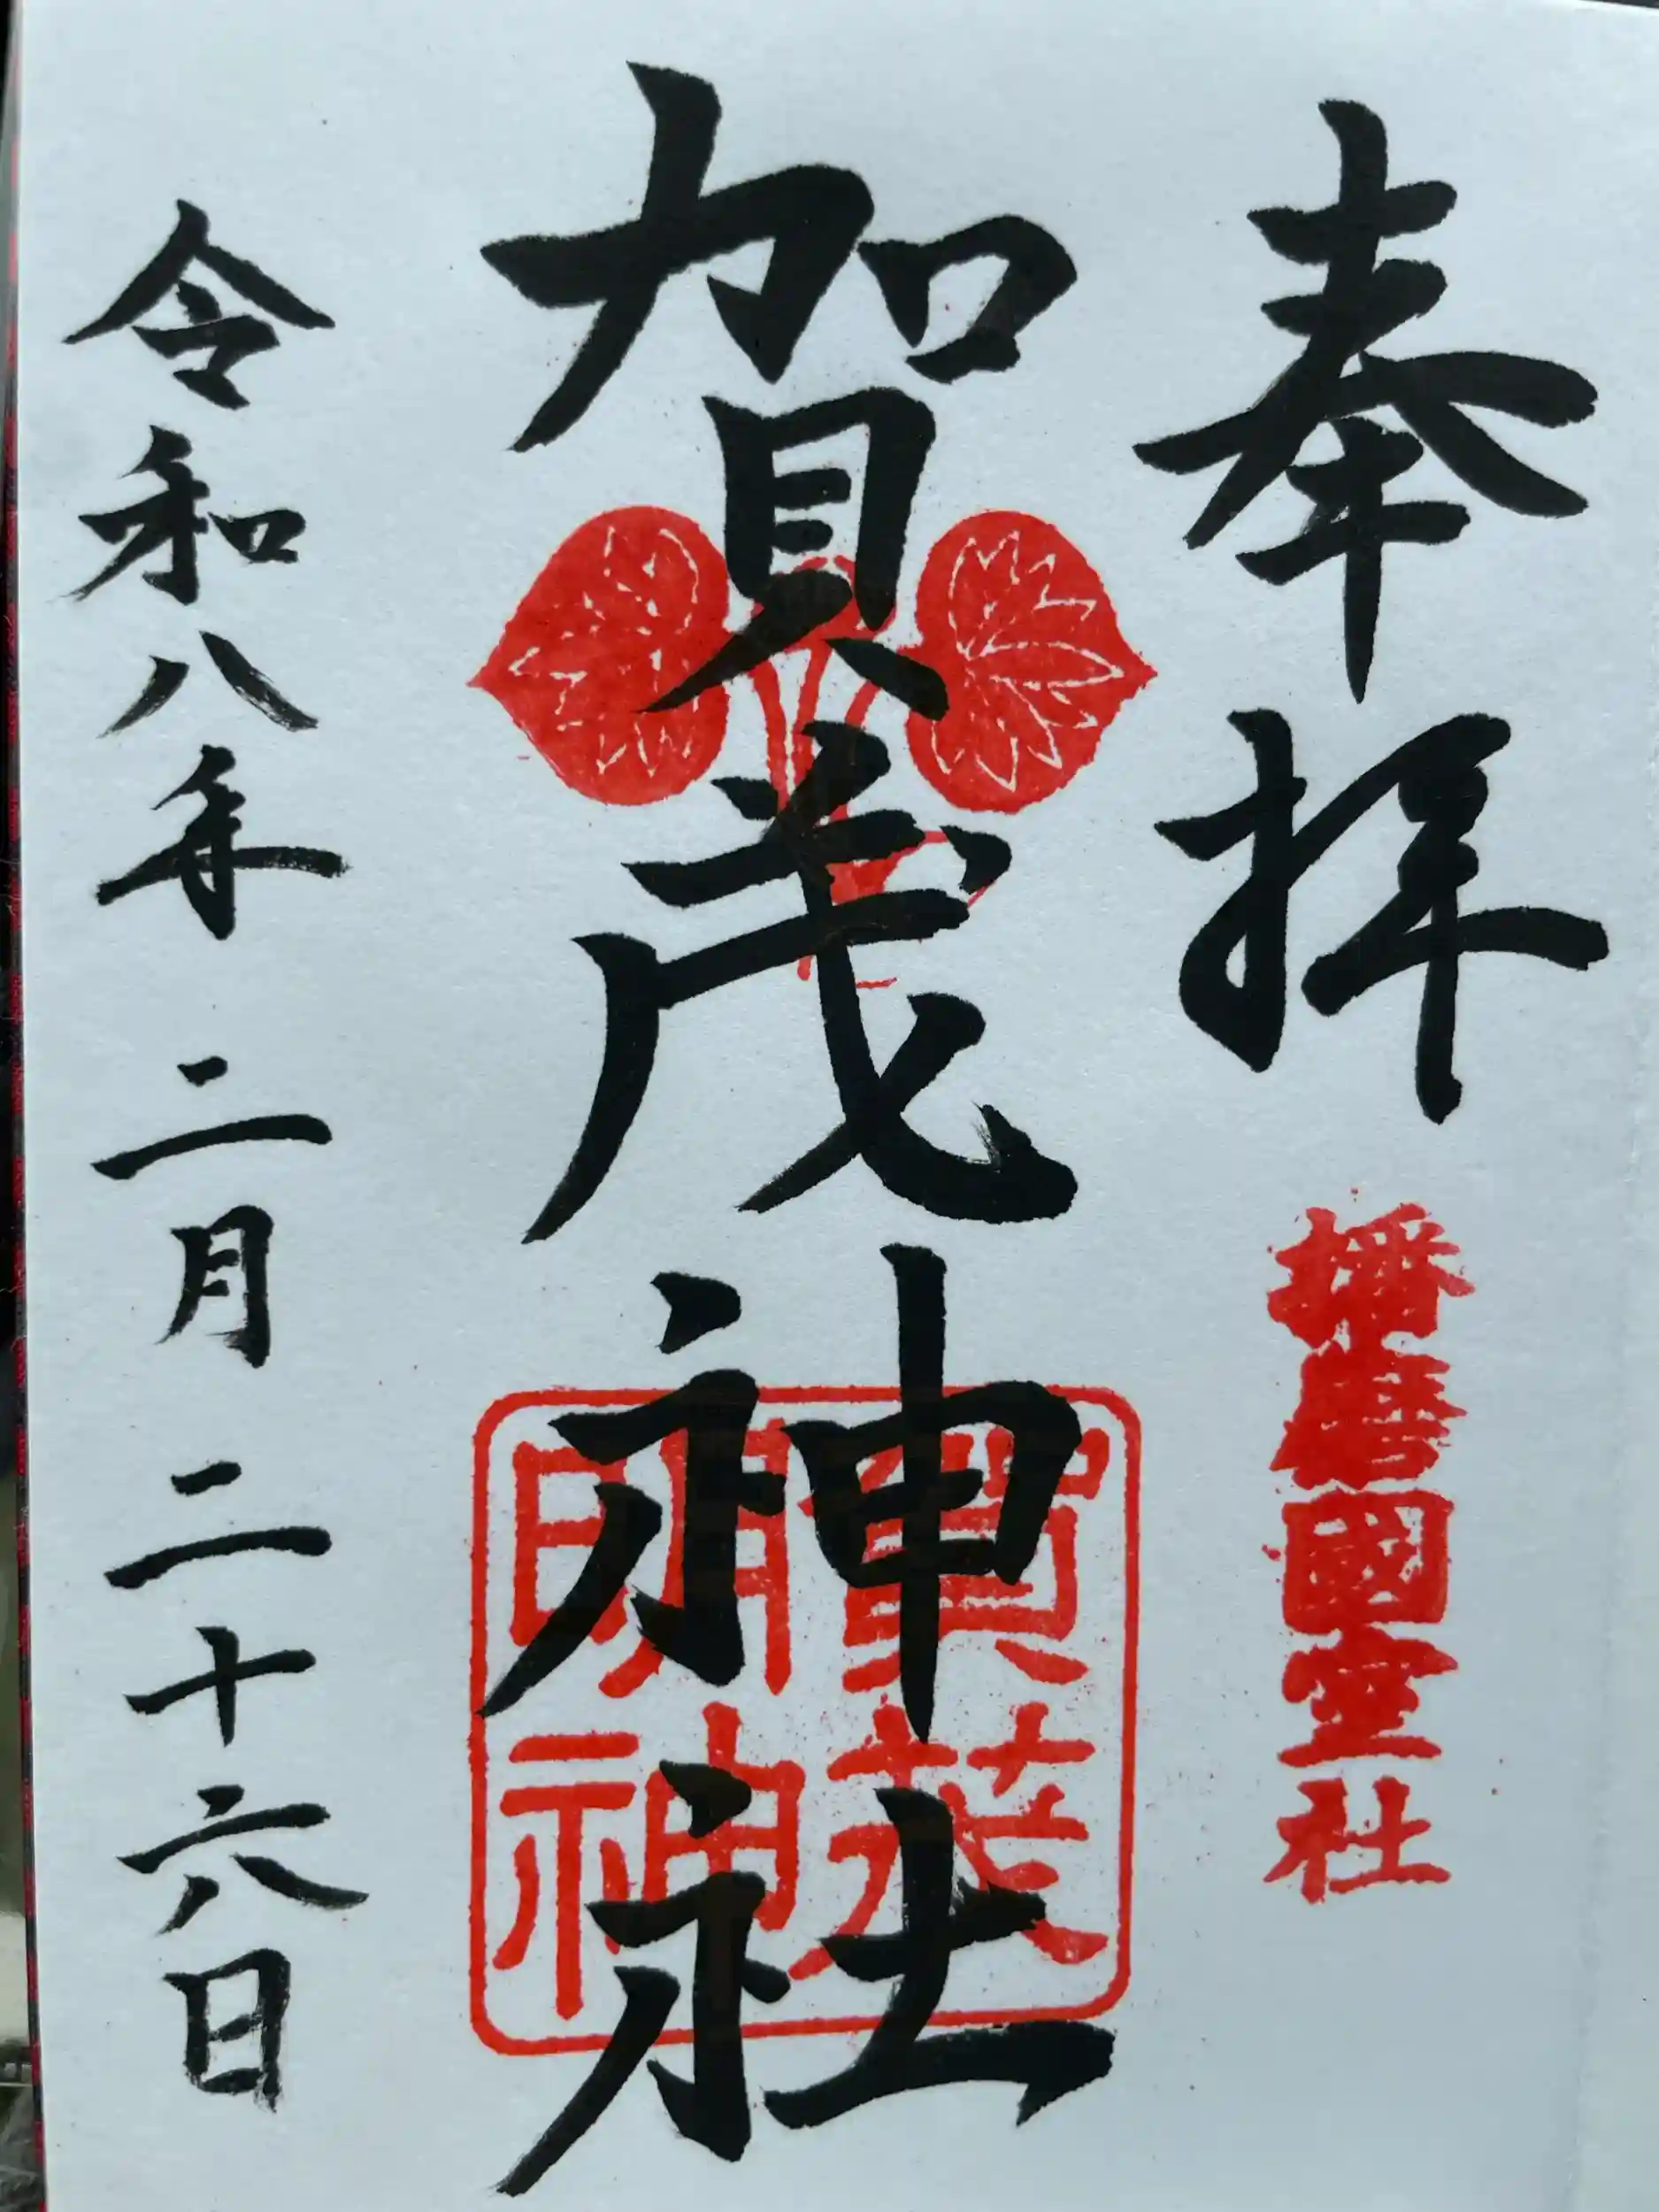 奉拝
播磨國室社
加賀茂神社
令和八年二月二十六日